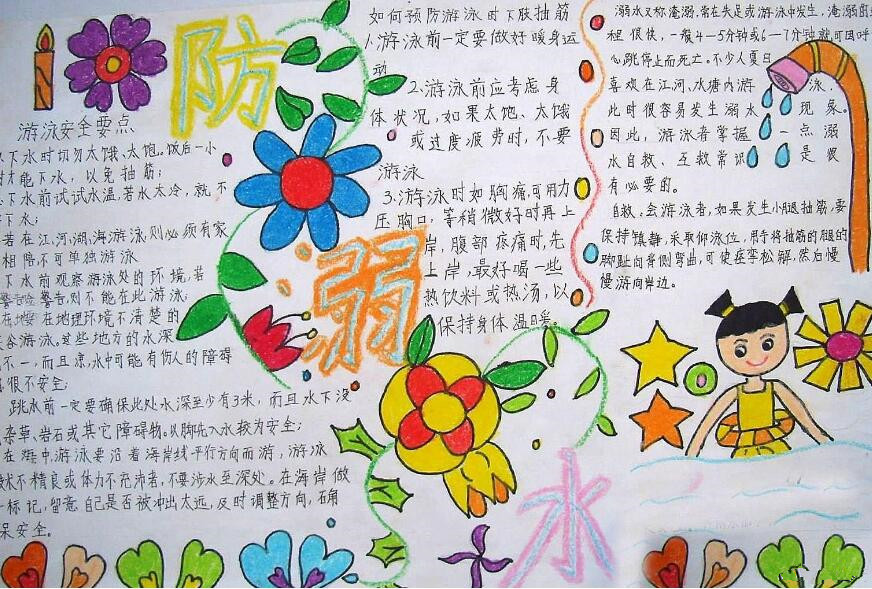 防
弱
水
游泳安全要点
下水时切勿太饿、太饱。饭后一小
才能下水，以免抽筋；
下水前试试水温，若水太冷，就不
下水；
若在江、河、湖、海游泳，则必须有家
相陪不可单独游泳
下水前观察游泳处的环境，若
警告，则不能在此游泳；
在地理环境不清楚的
谷游泳。这些地方的水深
不一，而且凉，水中可能有伤人的障碍
很不安全；
跳水前一定要确保此处水深至少有3米，而且水下没
杂草、岩石或其它障碍物。以脚先入水较为安全；
在海中游泳要沿着海岸线平行方向而游，游泳
术不精良或体力不充沛者，不要涉水至深处。在海岸做
标记，留意自己是否被冲出太远，及时调整方向，
保安全。
如何预防游泳时下肢抽筋
1.游泳前一定要做好暖身运
动
2.游泳前应考虑身
体状况，如果太饱、太饿
或过度疲劳时，不要
游泳
3.游泳时如胸痛，可用力
压胸口，等稍微好时再上
岸，腹部疼痛时，先
上岸，最好喝一些
热饮料或热汤，以
保持身体温暖。
溺水又称淹溺，常在失足或游泳中发生，淹溺的
程很快，一般4-5分钟或6-7分钟就可因呼
心跳停止而死亡。不少人夏日
喜欢在江河、水塘内游泳，
此时很容易发生溺水现象。
因此，游泳者掌握一点溺
水自救、互救常识是很
有必要的。
自救。会游泳者，如果发生小腿抽筋，要
保持镇静，采取仰泳位，用手将抽筋的腿的
脚趾向背侧弯曲，可使痉挛松解，然后慢
慢游向岸边。